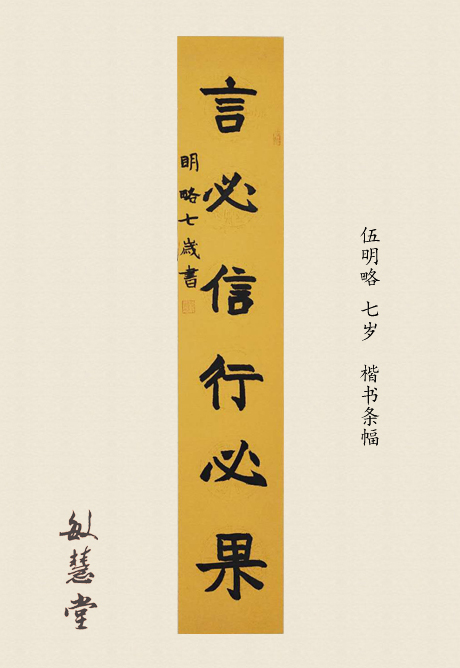 言必信行必果
明略七歲書
伍明略 七岁 楷书条幅
敏慧堂